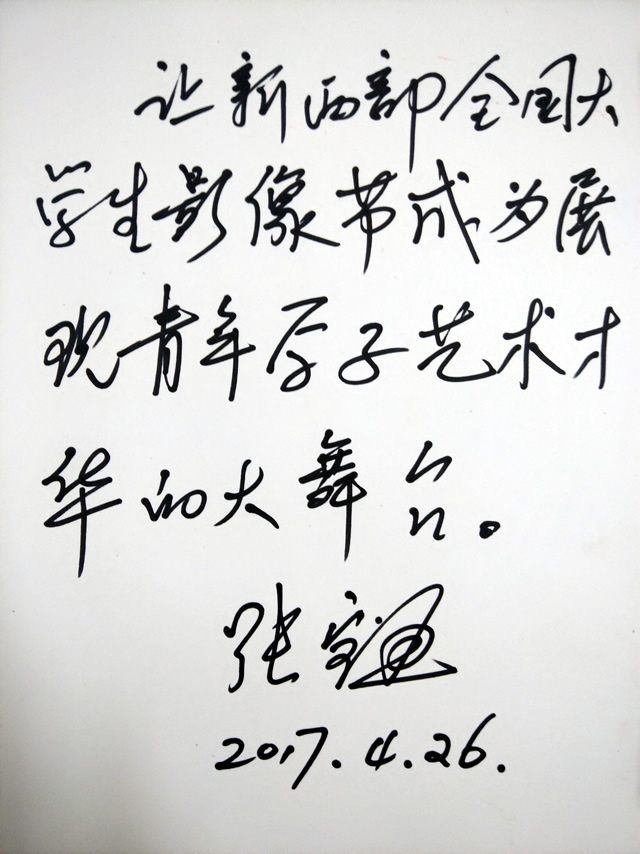 让新西部全国大
学生影像节成为展
现青年学子艺术才
华的大舞台。
张宝通
2017.4.26.